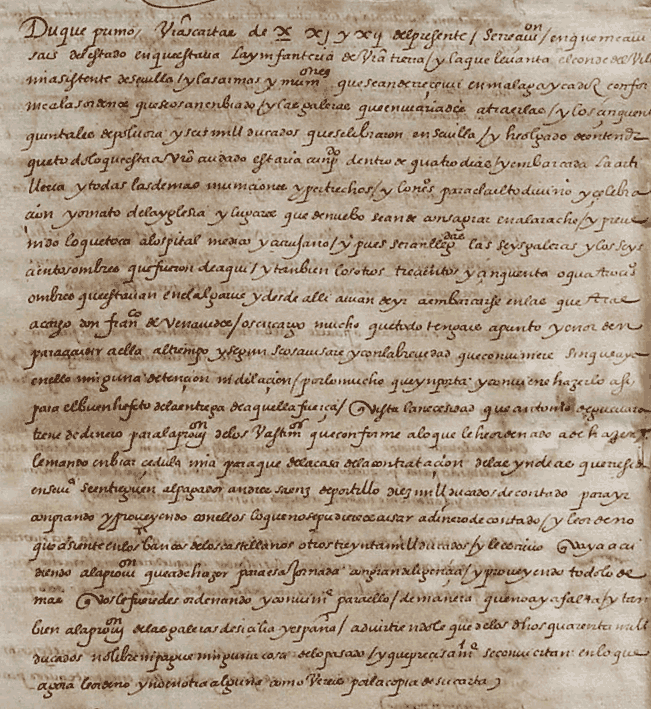 Duque primo, Vr̃as cartas de X XJ y XIJ del presente / se rreciuⁿ / en que me aui
sais del estado en que estaua la ynfanteria de Vr̃a tierra / y la que leuanta el conde del Vill
asistente de seuilla / y las armas y munⁿᵉˢ que se an de rreceuir en malaga y cadiz confor
me a las ordenes que se os an enbiado / y las galeras que enuiariades a traerlas / y los cinquenᵗᵃ
quintales de poluora y seis mill ducados que se libraron en seuilla / y he olgado de entendʳ
que todo lo que esta a Vr̃o cuidado estaria cunpᵈᵒ dentro de quatro dias / y embarcada la arti
lleria y todas las demas municiones y pertrechos / y lo nesᵒ para el culto diuino y celebra
cion y ornato de la yglesia y lugares que de nuebo se an de consagrar en alarache / y preue
nido lo que toca al ospital medico y cirujano / y pues seran llegᵈᵃˢ las seys galeras y los seys
cientos ombres que fueron de aqui / y tambien los otros trecientos y cinquenta o quatrocᵒˢ
ombres que estauan en el algarue y desde alli auian de yr a embarcarse en las que trae
a cargo don franᶜᵒ de Venauides / os encargo mucho que todo tengais a punto y en orden
para acudir a ella al tiempo y segun se os auisare y con la breuedad que conuiniere sin que aya
en ello ninguna detencion ni dilacion / por lo mucho que ynporta y conuiene hazerlo asi
para el buen hefeto de la entrega de aquella fuerça / Vista la necesidad que antonio de gueuara
tiene de dinero para la prouⁿ de los Vastimᵒˢ que conforme a lo que le he ordenado a de hazer,
le mando enbiar cedula mia para que de la casa de la contratacion de las yndias que reside
en seuᵃ se entreguen al pagador andres saenz de portillo diez mill ducados de contado para yr
conprando y proueyendo con ellos lo que no se pudiere escusar a dinero de contado / y le ordeno
que asiente en los bancos de los castellanos otros treynta mill ducados / y le escriuo Vaya acu
diendo a la prouⁿ que a de hazer para esa Jornada con gran diligencia / y proueyendo todo lo de
mas Vos le fueredes ordenando y conuinᵉ para ello / de manera que no aya falta / y tan
bien a la prouⁿ de las galeras de sicilia y españa / aduirtiendole que de los dhos quarenta mill
ducados no libre ni pague ninguna cosa de lo pasado / y que precisamᵗᵉ se conuiertan en lo que
agora le ordeno y no en otra alguna como Vereis por la copia de su carta,